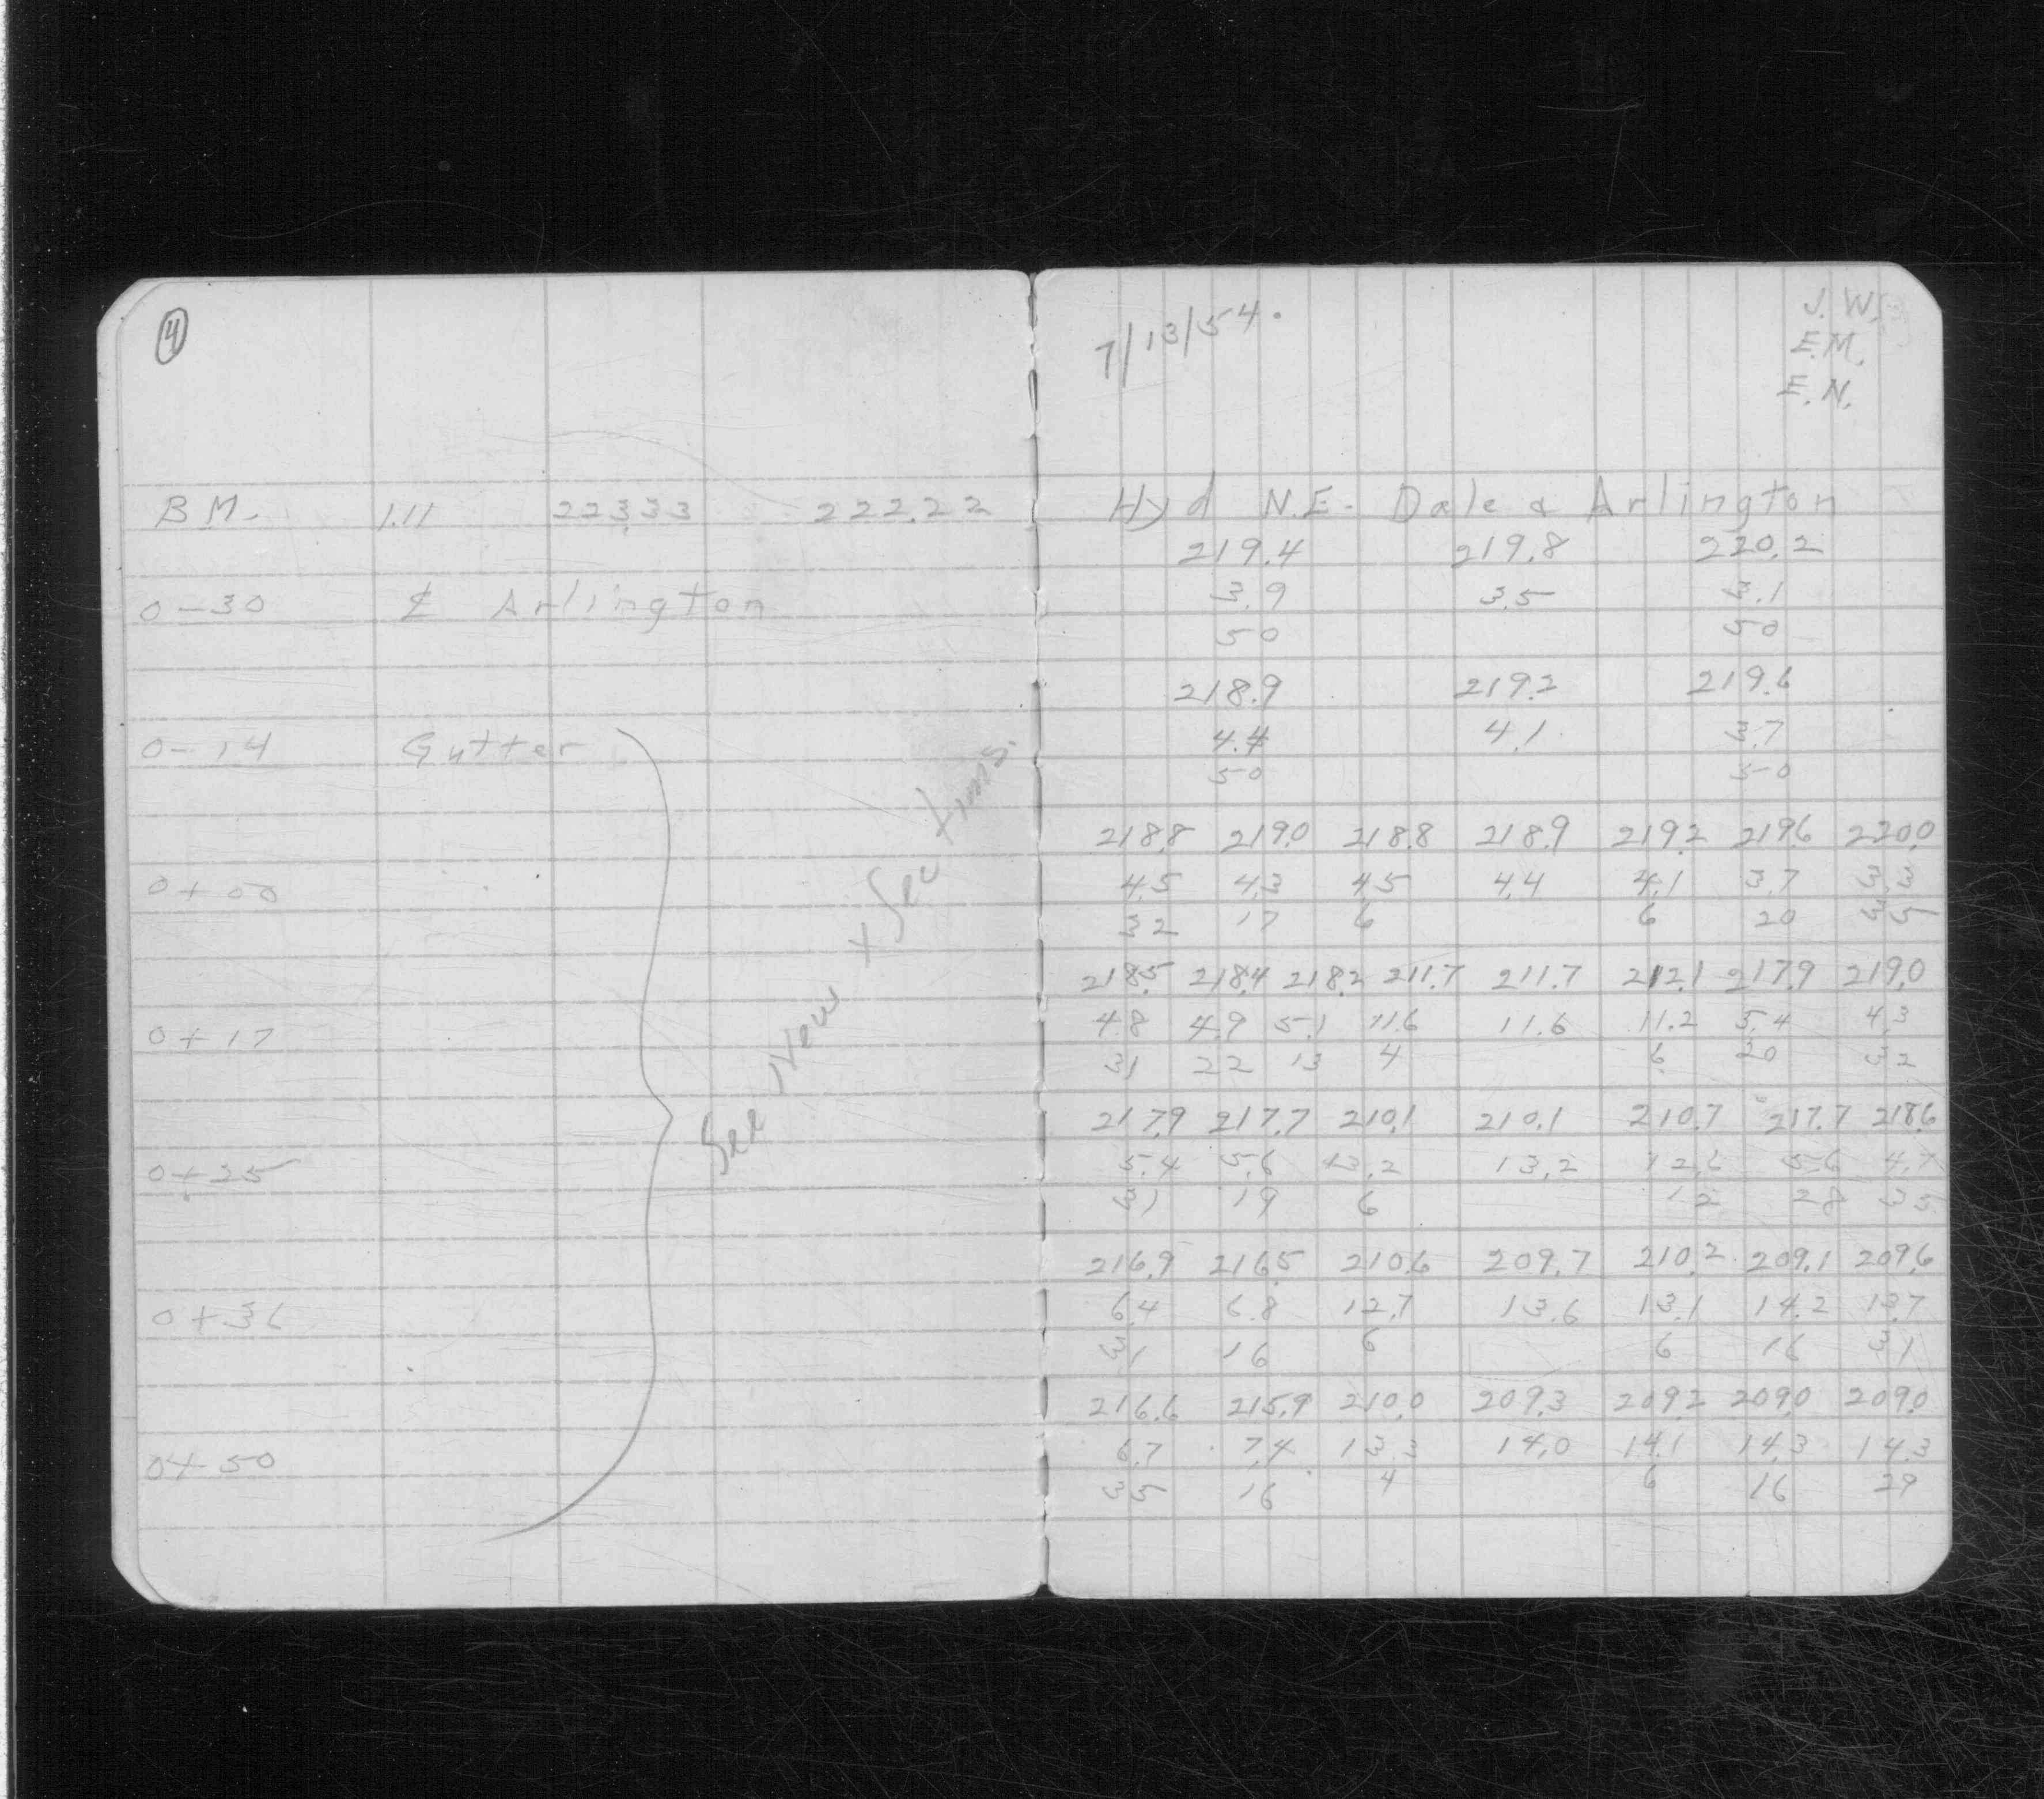 4
BM. 1.11 223.33 222.22
0-30 ℄ Arlington
0-14 Gutter
0+00
0+17
0+25
0+36
0+50
See New x Sections.
7/13/54.
J.W.
E.M.
E.N.
Hyd N.E. Dale & Arlington
219.4 219.8 220.2
3.9 3.5 3.1
50 50
218.9 219.2 219.6
4.4 4.1 3.7
50 50
218.8 219.0 218.8 218.9 219.2 219.6 220.0
4.5 4.3 4.5 4.4 4.1 3.7 3.3
32 17 6 6 20 35
218.5 218.4 218.2 211.7 211.7 212.1 217.9 219.0
4.8 4.9 5.1 11.6 11.6 11.2 5.4 4.3
31 22 13 4 6 20 32
217.9 217.7 210.1 210.1 210.7 217.7 218.6
5.4 5.6 13.2 13.2 12.6 5.6 4.7
31 19 6 12 28 35
216.9 216.5 210.6 209.7 210.2 209.1 209.6
6.4 6.8 12.7 13.6 13.1 14.2 13.7
31 16 6 6 16 31
216.6 215.9 210.0 209.3 209.2 209.0 209.0
6.7 7.4 13.3 14.0 14.1 14.3 14.3
35 16 4 6 16 29